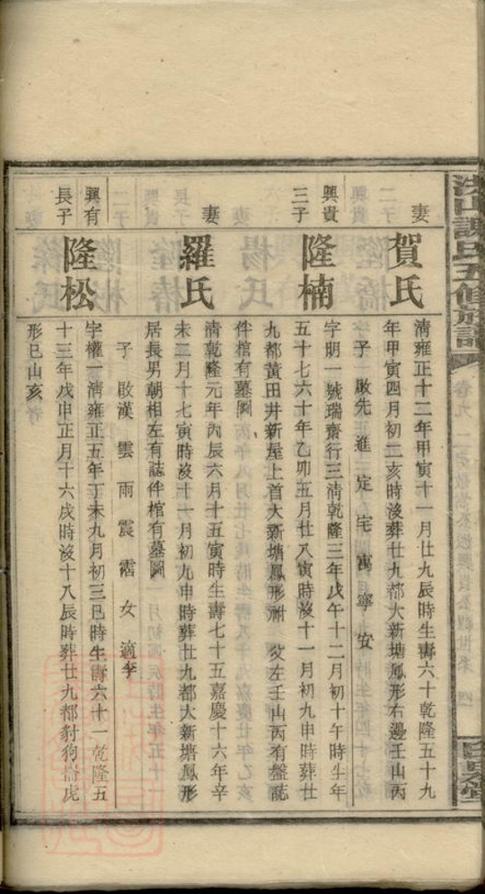 謝氏五修族譜
卷九
妻
賀氏
清雍正十二年甲寅十一月廿九辰時生壽六十乾隆五十九
年甲寅四月初二亥時沒葬廿九都大新塘鳳形右邊壬山丙
子 啟先 進 定 宅 寓 寧 安
興貴
三子
隆楠
字期一號瑞齋行三清乾隆三年戊午十二月初十午時生年
五十七六十年乙卯五月廿八寅時沒十一月初九申時葬廿
九都黃田井新屋上首大新塘鳳形祔 父左壬山丙有盤誌
件棺有墓圖
妻
羅氏
清乾隆元年丙辰六月十五寅時生壽七十五嘉慶十六年辛
未二月十七寅時沒十一月初九申時葬廿九都大新塘鳳形
居長男朝相左有誌件棺有墓圖
子 啟漢 雲 雨 震 霑 女 適李
興有
長子
隆松
字權一清雍正五年丁未九月初三巳時生壽六十一乾隆五
十三年戊申正月十六戌時沒十八辰時葬廿九都豺狗 虎
形巳山亥